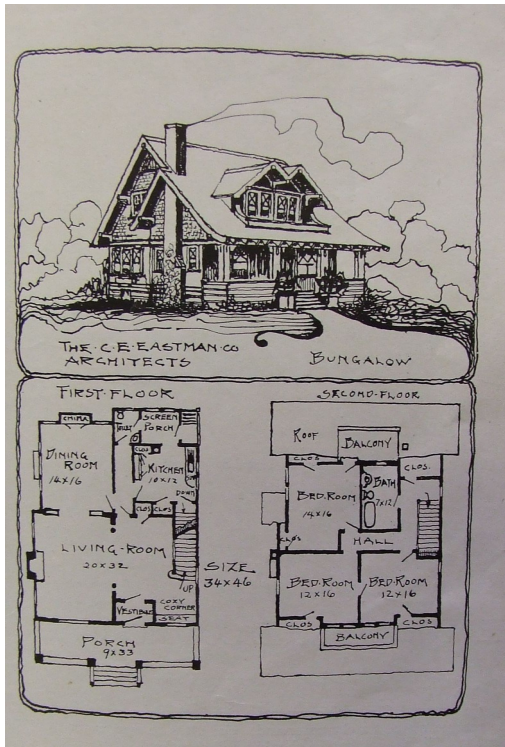 THE·C·E·EASTMAN·CO
ARCHITECTS
BUNGALOW
FIRST·FLOOR
CHINA
TOILET
SCREEN
PORCH
DINING
ROOM
14X16
CLOS
KITCHEN
10X12
DOWN
CLOS
CLOS
LIVING-ROOM
20X32
UP
VESTIBULE
COZY
CORNER
SEAT
PORCH
9X33
SIZE
34X46
SECOND-FLOOR
ROOF
BALCONY
CLOS
CLOS.
BED·ROOM
14X16
BATH
7X12
CLOS
HALL
BED·ROOM
12X16
BED·ROOM
12X16
CLOS
CLOS
BALCONY